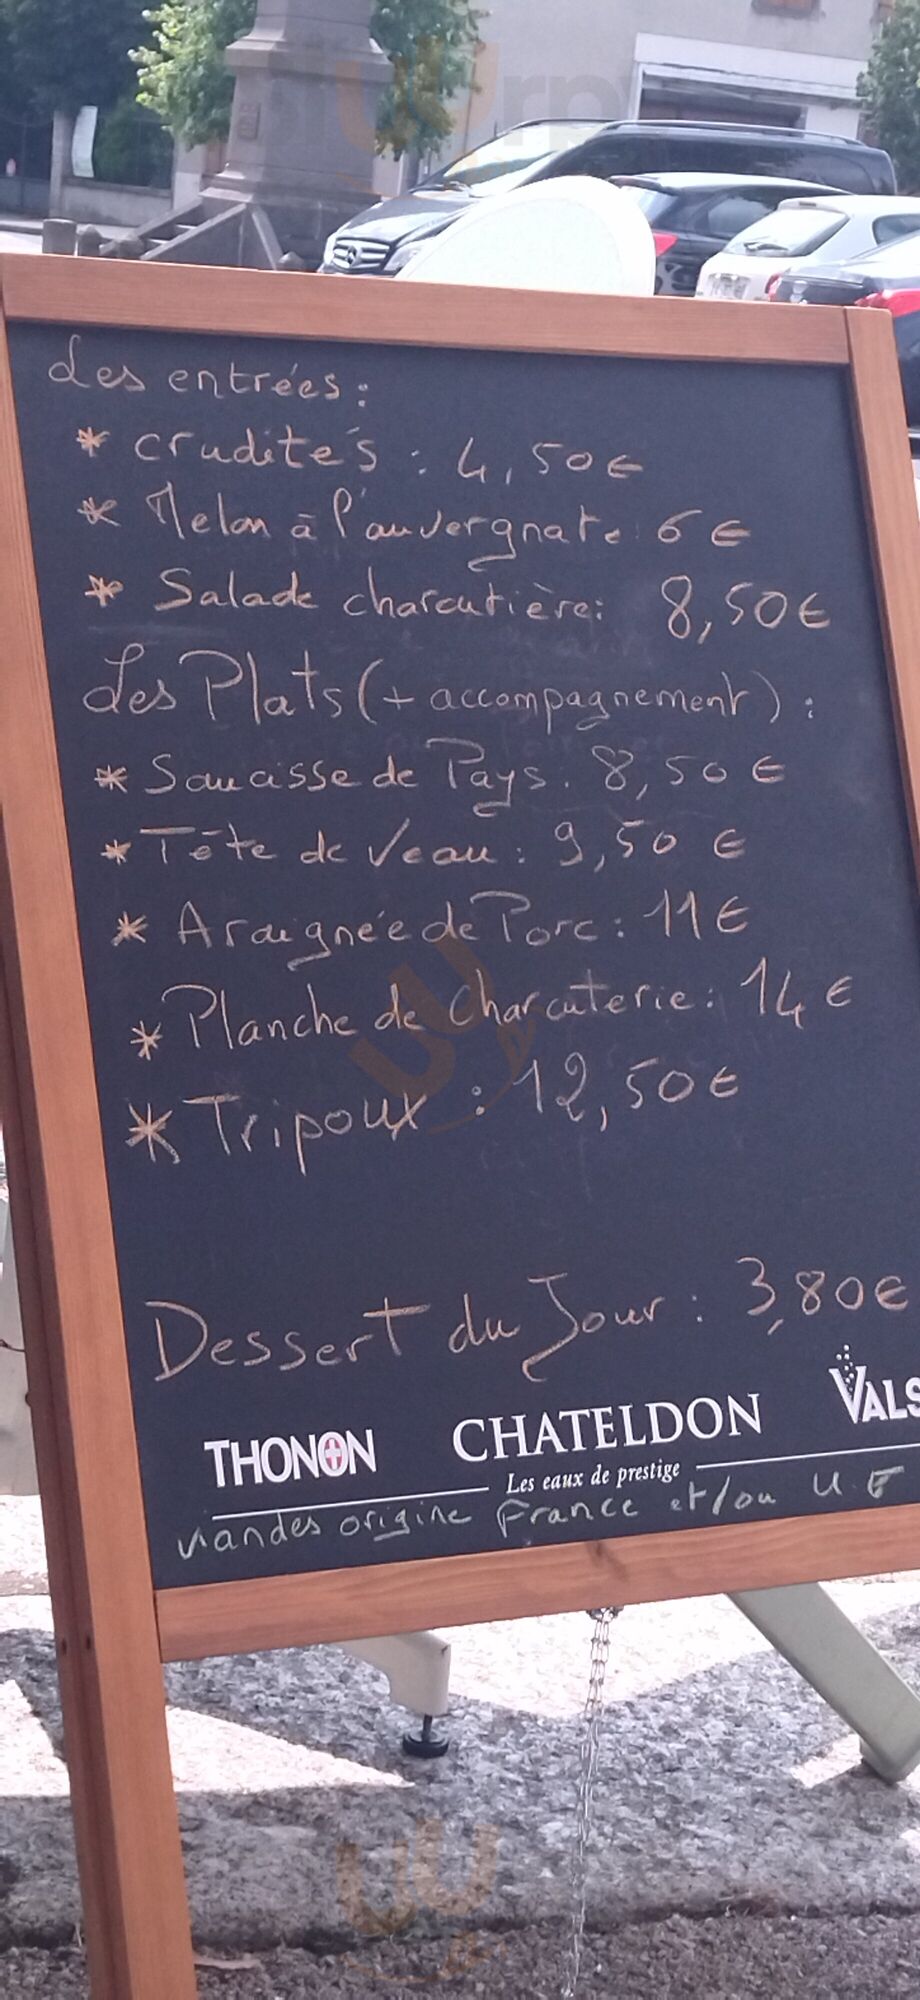 Les entrées :
* crudités : 4,50€
* Melon à l'auvergnate 6 €
* Salade charcutière: 8,50€
Les Plats (+ accompagnement) :
* Saucisse de Pays. 8,50 €
* Tête de Veau : 9,50 €
* Araignée de Porc : 11€
* Planche de Charcuterie : 14€
* Tripoux : 12,50€
Dessert du Jour : 3,80€
THONON CHATELDON VALS
Les eaux de prestige
viandes origine France et/ou U.E